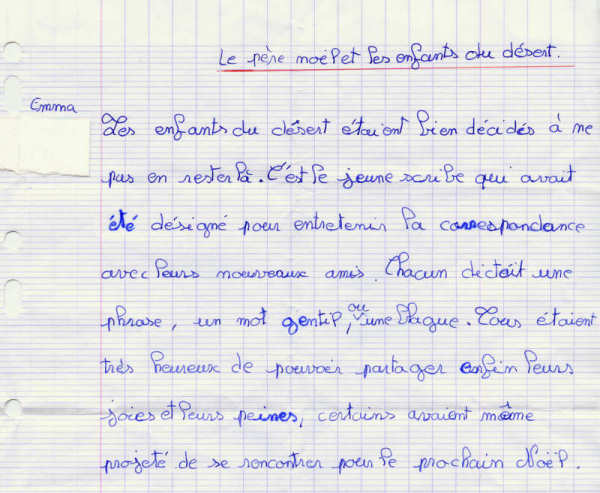 Le père noël et les enfants du désert.
Emma
Les enfants du désert étaient bien décidés à ne
pas en rester là. C'est le jeune scribe qui avait
été désigné pour entretenir la correspondance
avec leurs nouveaux amis. Chacun dictait une
phrase, un mot gentil, ou une blague. Tous étaient
très heureux de pouvoir partager enfin leurs
joies et leurs peines, certains avaient même
projeté de se rencontrer pour le prochain Noël.